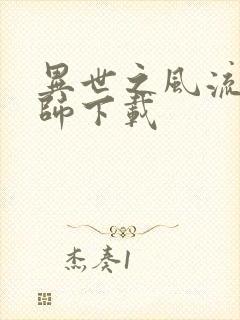 異世之風流
師下載
杰奏1